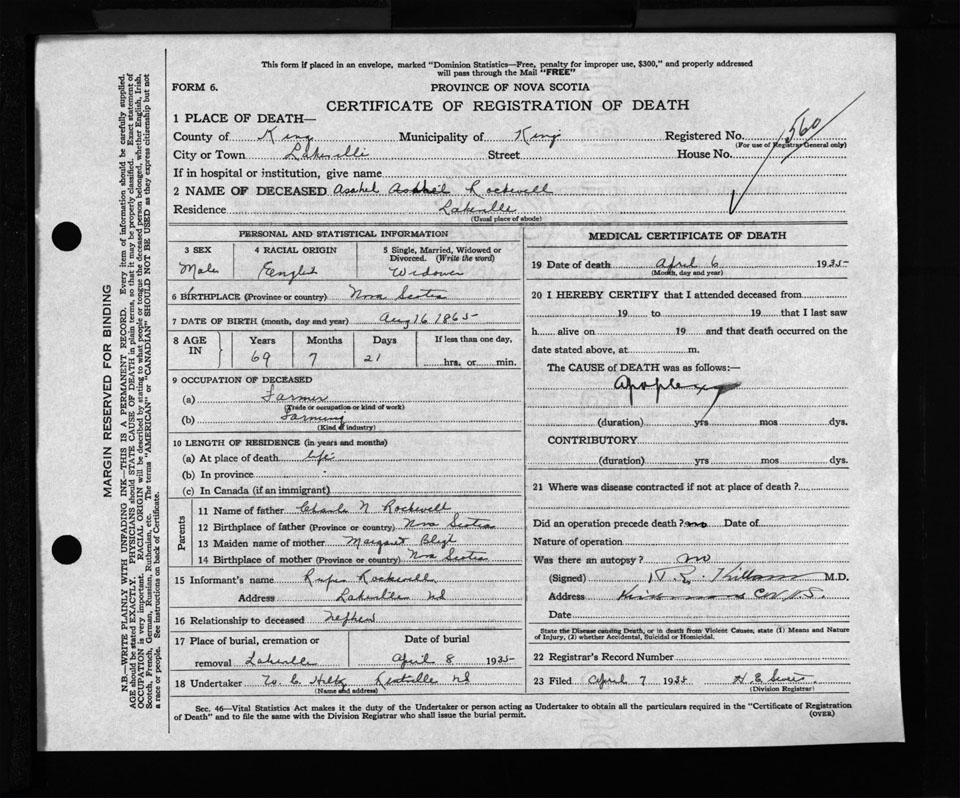 This form if placed in an envelope, marked "Dominion Statistics—Free, penalty for improper use, $300," and properly addressed
will pass through the Mail "FREE"
FORM 6.
PROVINCE OF NOVA SCOTIA
CERTIFICATE OF REGISTRATION OF DEATH
1 PLACE OF DEATH—
County of King Municipality of King Registered No. 560
(For use of Registrar General only)
City or Town Lakeville Street House No.
If in hospital or institution, give name
2 NAME OF DECEASED Asahel Rockwell
Residence Lakeville
(Usual place of abode)
PERSONAL AND STATISTICAL INFORMATION
3 SEX 4 RACIAL ORIGIN 5 Single, Married, Widowed or
Divorced. (Write the word)
Male English Widower
6 BIRTHPLACE (Province or country) Nova Scotia
7 DATE OF BIRTH (month, day and year) Aug 16 1865
8 AGE IN Years Months Days If less than one day,
69 7 21 hrs. or min.
9 OCCUPATION OF DECEASED
(a) Farmer
(Trade or occupation or kind of work)
(b) Farming
(Kind of industry)
10 LENGTH OF RESIDENCE (in years and months)
(a) At place of death life
(b) In province
(c) In Canada (if an immigrant)
Parents
11 Name of father Charles N Rockwell
12 Birthplace of father (Province or country) Nova Scotia
13 Maiden name of mother Margaret
14 Birthplace of mother (Province or country) Nova Scotia
15 Informant's name Rufus Rockwell
Address Lakeville NS
16 Relationship to deceased Nephew
17 Place of burial, cremation or Date of burial
removal Lakeville April 8 1935
18 Undertaker NS
(Name and address)
MEDICAL CERTIFICATE OF DEATH
19 Date of death April 6 1935
(Month, day and year)
20 I HEREBY CERTIFY that I attended deceased from
19 to 19 that I last saw
h alive on 19 and that death occurred on the
date stated above, at m.
The CAUSE of DEATH was as follows:—
Apoplexy
(duration) yrs mos dys.
CONTRIBUTORY
(duration) yrs mos dys.
21 Where was disease contracted if not at place of death?
Did an operation precede death? no Date of
Nature of operation
Was there an autopsy? no
(Signed) M.D.
Address
Date
State the Disease causing Death, or in death from Violent Causes, state (1) Means and Nature
of Injury, (2) whether Accidental, Suicidal or Homicidal.
22 Registrar's Record Number
23 Filed April 7 1935 H E
(Division Registrar)
Sec. 46—Vital Statistics Act makes it the duty of the Undertaker or person acting as Undertaker to obtain all the particulars required in the "Certificate of Registration
of Death" and to file the same with the Division Registrar who shall issue the burial permit.
(OVER)
MARGIN RESERVED FOR BINDING
N.B.—WRITE PLAINLY WITH UNFADING INK—THIS IS A PERMANENT RECORD. Every item of information should be carefully supplied.
AGE should be stated EXACTLY. PHYSICIANS should STATE CAUSE OF DEATH in plain terms, so that it may be properly classified. Exact statement of
OCCUPATION is very important. RACIAL ORIGIN will be described by stating to what people or tongue the deceased person belonged, whether English, Irish,
Scotch, French, German, Russian, Ruthenian, etc. The terms "AMERICAN" or "CANADIAN" SHOULD NOT BE USED as they express citizenship but not
a race or people. See instructions on back of Certificate.